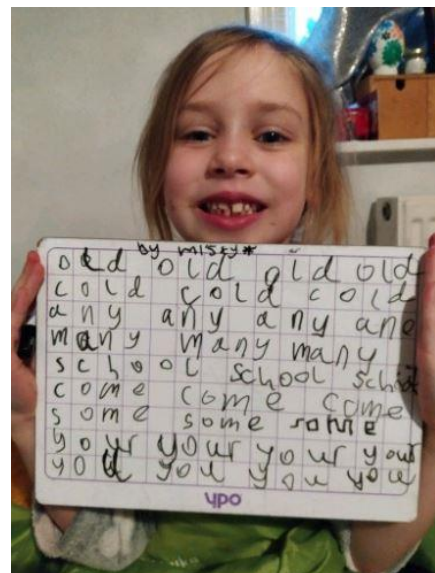 by misty*
old old old old
cold cold cold
any any any ane
many many many
school school school
come come come
some some some
your your your your
you you you you
ypo